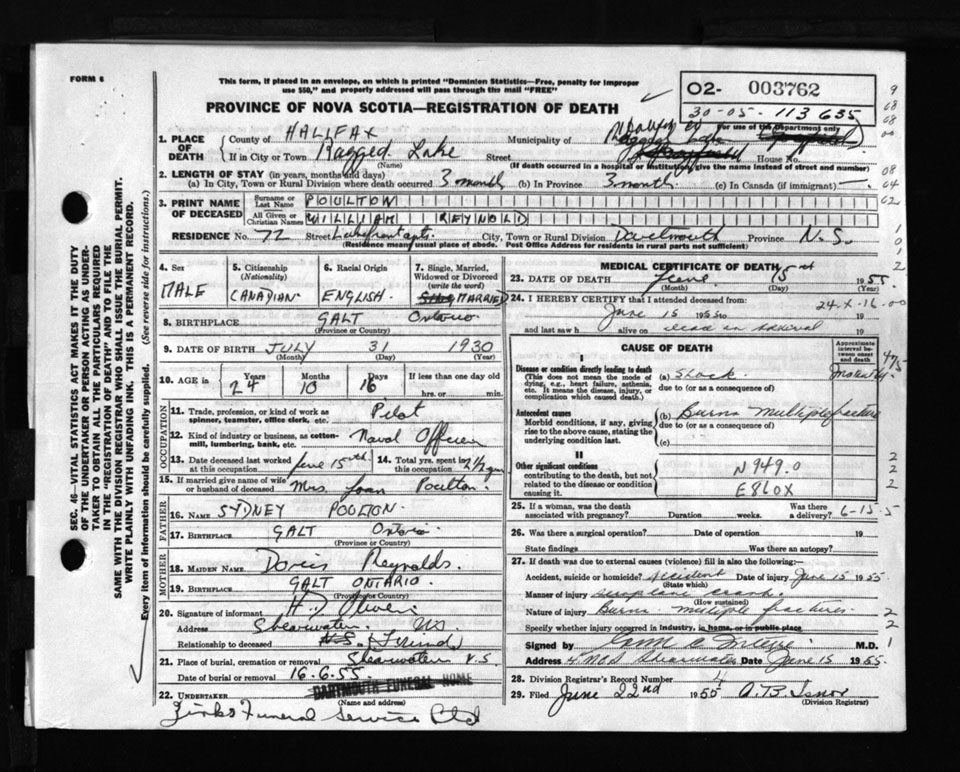 FORM 6
This form, if placed in an envelope, on which is printed "Dominion Statistics—Free, penalty for improper
use $50," and properly addressed will pass through the mail "FREE"
PROVINCE OF NOVA SCOTIA—REGISTRATION OF DEATH
02- 003762
30-05- 113635
For use of the Department only
1. PLACE OF DEATH
County of HALIFAX Municipality of
If in City or Town Ragged Lake Street House No.
(Name) (If death occurred in a hospital or institution, give the name instead of street and number)
2. LENGTH OF STAY (in years, months and days)
(a) In City, Town or Rural Division where death occurred 3 month (b) In Province 3 month. (c) In Canada (if immigrant) —
3. PRINT NAME OF DECEASED
Surname or Last Name POULTON
All Given or Christian Names WILLIAM REYNOLD
RESIDENCE No. 72 Street Lakefront apts. City, Town or Rural Division Dartmouth Province N.S.
(Residence means usual place of abode. Post Office Address for residents in rural parts not sufficient)
4. Sex MALE
5. Citizenship (Nationality) CANADIAN
6. Racial Origin ENGLISH.
7. Single, Married, Widowed or Divorced (write the word) MARRIED
8. BIRTHPLACE GALT Ontario
(Province or Country)
9. DATE OF BIRTH JULY 31 1930
(Month) (Day) (Year)
10. AGE in Years 24 Months 10 Days 16 If less than one day
hrs. or min.
OCCUPATION
11. Trade, profession, or kind of work as spinner, teamster, office clerk, etc. Pilot
12. Kind of industry or business, as cotton-mill, lumbering, bank, etc. Naval Officer
13. Date deceased last worked at this occupation June 15th. 14. Total yrs. spent in this occupation 2½ yrs
15. If married give name of wife or husband of deceased Mrs. Joan Poulton.
FATHER
16. NAME SYDNEY POOLTON
17. BIRTHPLACE GALT Ontario
(Province or Country)
MOTHER
18. MAIDEN NAME Doris Reynolds.
19. BIRTHPLACE GALT ONTARIO.
(Province or Country)
20. Signature of informant H.D. Oliver
Address Shearwater NS
Relationship to deceased (Friend)
21. Place of burial, cremation or removal Shearwater N.S.
Date of burial or removal 16.6.55.
DARTMOUTH FUNERAL HOME
22. UNDERTAKER
(Name and address)
Zinks Funeral Service Ltd
MEDICAL CERTIFICATE OF DEATH
23. DATE OF DEATH June 15 1955
(Month) (Day) (Year)
24. I HEREBY CERTIFY that I attended deceased from:
24-X-16-00
June 15 1955 to 19
and last saw h alive on dead on arrival 19
CAUSE OF DEATH
Approximate interval between onset and death
I
Disease or condition directly leading to death
(This does not mean the mode of dying, e.g., heart failure, asthenia, etc. It means the disease, injury, or complication which caused death.)
(a) Shock.
due to (or as a consequence of)
Antecedent causes
Morbid conditions, if any, giving rise to the above cause, stating the underlying condition last.
(b) Burns multiple fracture
due to (or as a consequence of)
(c)
II
Other significant conditions
contributing to the death, but not related to the disease or condition causing it.
N949.0
E860X
25. If a woman, was the death associated with pregnancy? Duration weeks. Was there a delivery? 6-15-5
26. Was there a surgical operation? Date of operation 19
State findings Was there an autopsy?
27. If death was due to external causes (violence) fill in also the following:
Accident, suicide or homicide? Accident Date of injury June 15 1955
(State which)
Manner of injury aeroplane crash.
(How sustained)
Nature of injury Burns multiple fractures.
Specify whether injury occurred in industry, in home, or in public place.
Signed by M.D.
Address Shearwater Date June 15 1955.
28. Division Registrar's Record Number 4
29. Filed June 22nd 1955 A.B Isnor
(Division Registrar)
SEC. 46—VITAL STATISTICS ACT MAKES IT THE DUTY
OF THE UNDERTAKER OR PERSON ACTING AS UNDER-
TAKER TO OBTAIN ALL THE PARTICULARS REQUIRED
IN THE "REGISTRATION OF DEATH" AND TO FILE THE
SAME WITH THE DIVISION REGISTRAR WHO SHALL ISSUE THE BURIAL PERMIT.
WRITE PLAINLY WITH UNFADING INK. THIS IS A PERMANENT RECORD.
Every item of information should be carefully supplied. (See reverse side for instructions.)